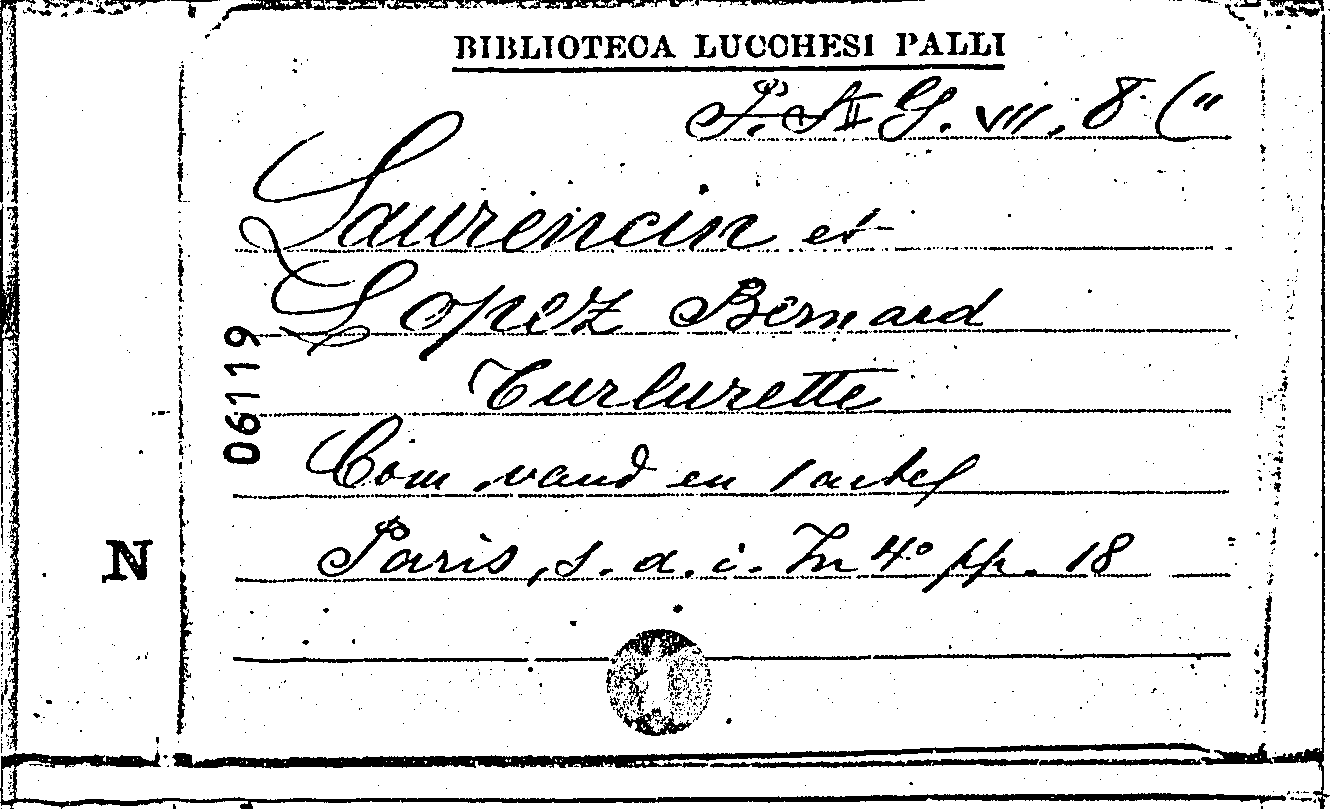 BIBLIOTECA LUCCHESI PALLI
G. VII. 8 ("
Laurencin et
Lopez Bernard
Turlurette
Com vaud en 1 acte
Paris, s. a. i. In 4° pp. 18
06119
N